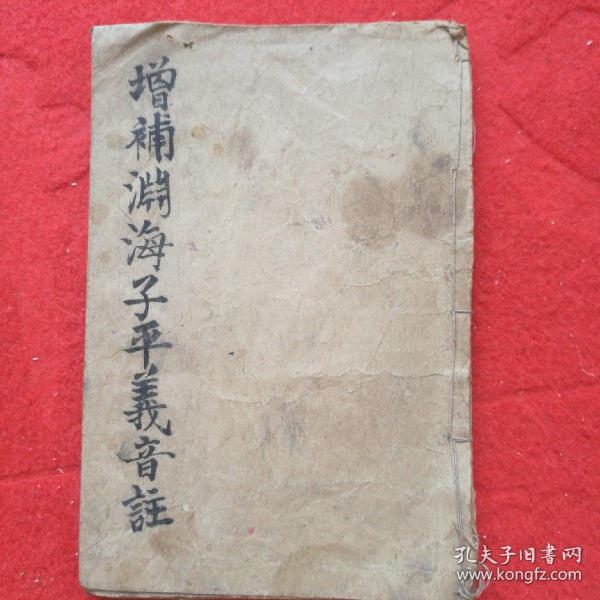 增補淵海子平義音註
孔夫子旧书网
www.kongfz.com